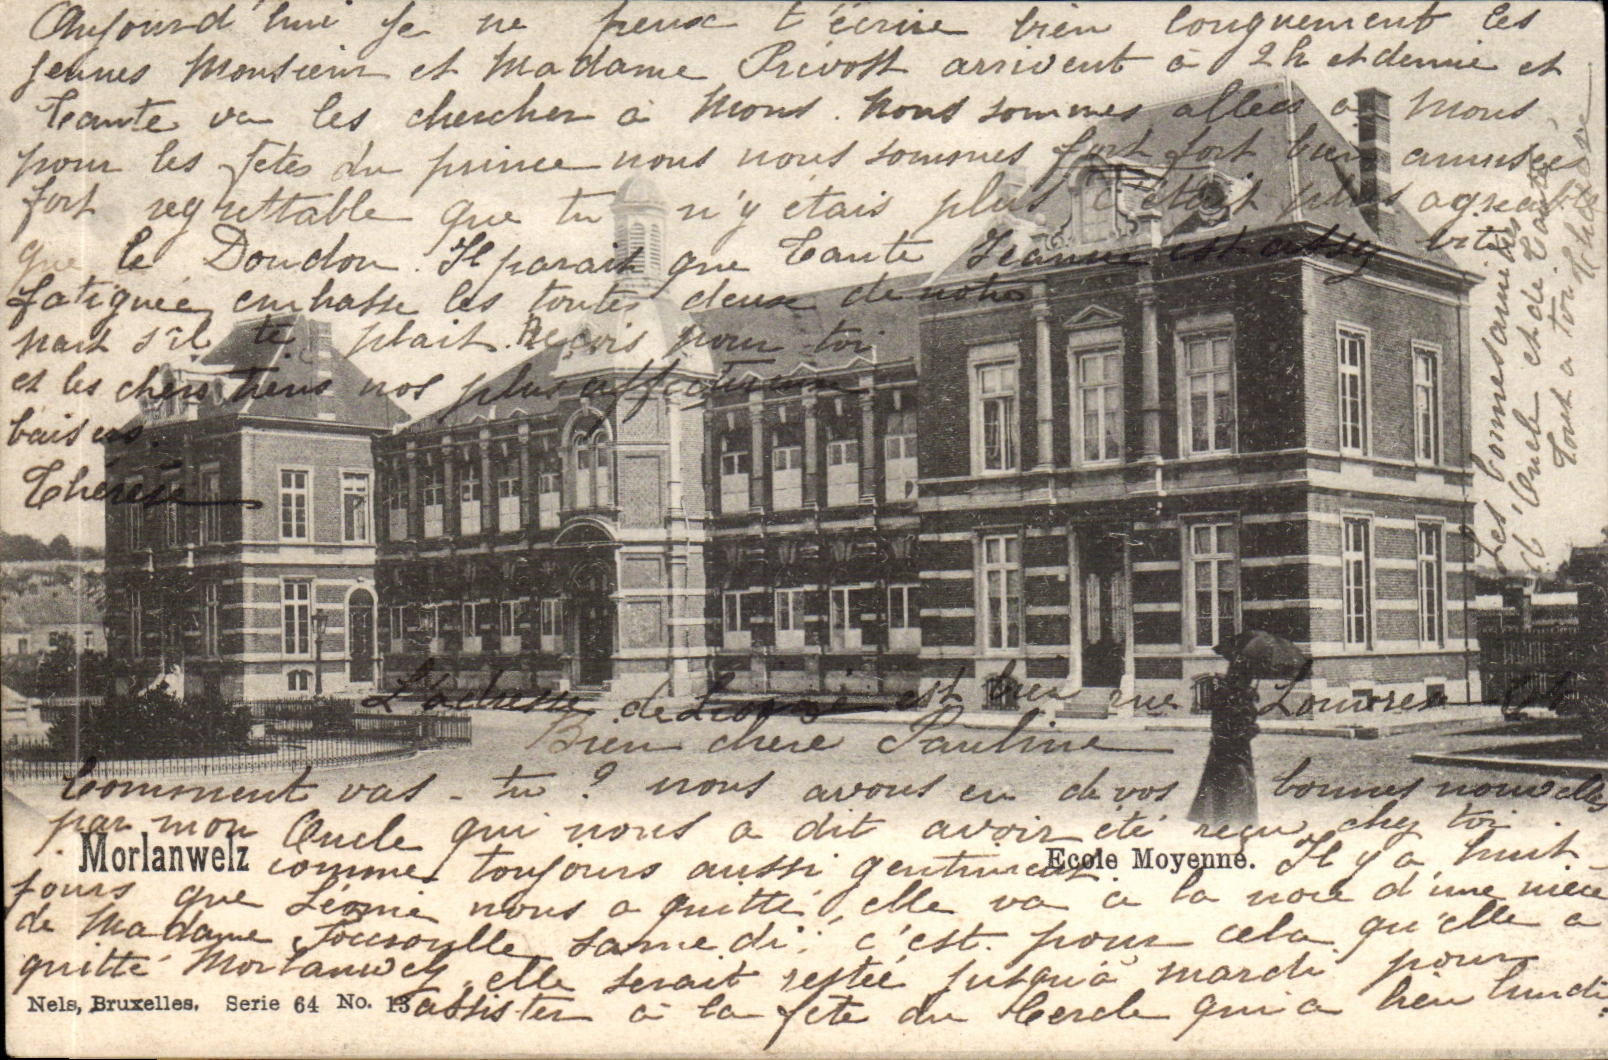 Aujourd'hui je ne peux t'écrire bien longuement les
jeunes Monsieur et Madame Prévost arrivent à 2h et demie et
tante va les chercher à Mons. Nous sommes allées à Mons
pour les fêtes du prince nous nous sommes fort fort bien amusées
fort regrettable que tu n'y étais plus c'était plus agréable
que le Doudou. Il parait que tante Jeanne est aussi vite
fatiguée, embasse les toutes deux de notre
part s'il te plait. Reçois pour toi
et les chers tiens nos plus affectueux
baisers.
Thérèse
Les bonnes amitiés
d'Oncle et de Tante
Tout à toi Thérèse
L'adresse de Léonie est bien rue Louvrex 94
Bien chère Pauline
Comment vas-tu? nous avons eu de vos bonnes nouvelles
par mon Oncle qui nous a dit avoir été reçu chez toi
Morlanwelz comme toujours aussi gentiment. Il y a huit
Ecole Moyenne.
jours que Léonie nous a quitté, elle va à la noce d'une nièce
de Madame samedi; c'est pour cela qu'elle a
quitté Morlanwelz, elle serait restée jusqu'à mardi pour
Nels, Bruxelles. Serie 64 No. 13
assister à la fête du Cercle qui a lieu lundi.